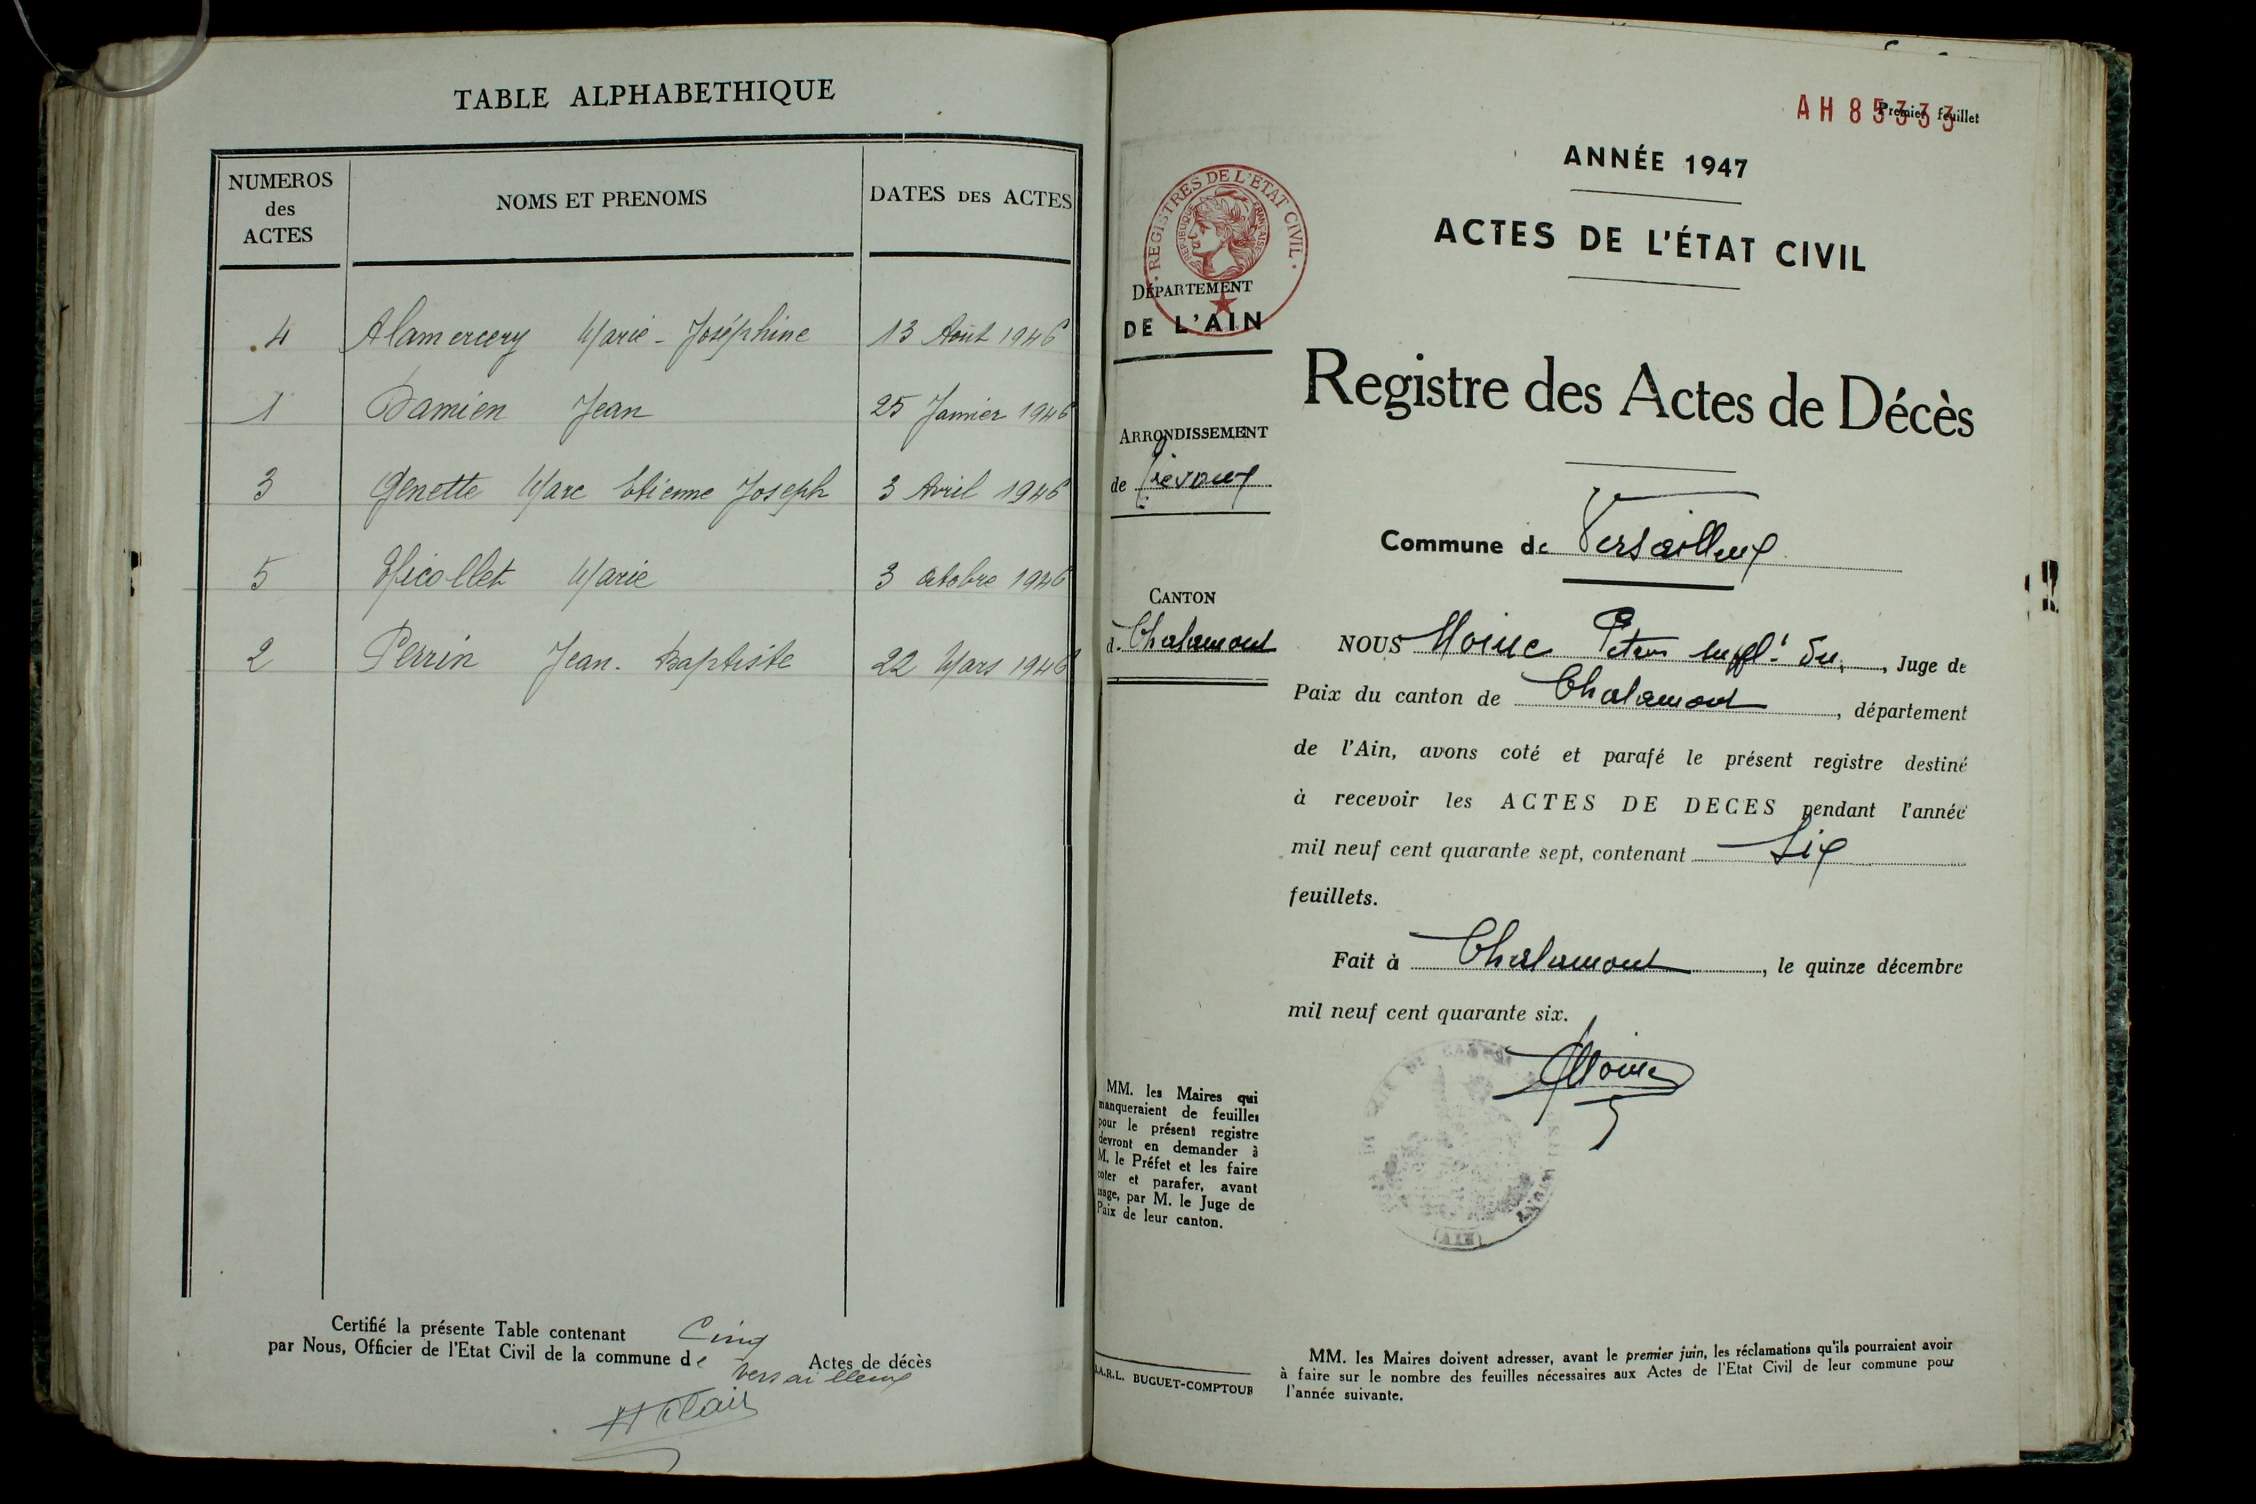 TABLE ALPHABETHIQUE
NUMEROS des ACTES
NOMS ET PRENOMS
DATES DES ACTES
4 Alamercery Marie-Joséphine 13 Août 1946
1 Damien Jean 25 Janvier 1946
3 Genette Marc Etienne Joseph 3 Avril 1946
5 Nicollet Marie 3 octobre 1946
2 Perrin Jean-Baptiste 22 Mars 1946
Certifié la présente Table contenant Cinq Actes de décès
par Nous, Officier de l'Etat Civil de la commune de Versailleux
AH 85333
Premier feuillet
ANNÉE 1947
ACTES DE L'ÉTAT CIVIL
REGISTRES DE L'ETAT CIVIL
REPUBLIQUE FRANCAISE
DÉPARTEMENT
DE L'AIN
ARRONDISSEMENT
de Trévoux
CANTON
d. Chalamont
Registre des Actes de Décès
Commune de Versailleux
NOUS Moine suppl.t du, Juge de
Paix du canton de Chalamont, département
de l'Ain, avons coté et parafé le présent registre destiné
à recevoir les ACTES DE DECES pendant l'année
mil neuf cent quarante sept, contenant Six
feuillets.
Fait à Chalamont, le quinze décembre
mil neuf cent quarante six.
Moine
MM. les Maires qui
manqueraient de feuilles
pour le présent registre
devront en demander à
M. le Préfet et les faire
coter et parafer, avant
usage, par M. le Juge de
Paix de leur canton.
S.A.R.L. BUGUET-COMPTOUR
MM. les Maires doivent adresser, avant le premier juin, les réclamations qu'ils pourraient avoir
à faire sur le nombre des feuilles nécessaires aux Actes de l'Etat Civil de leur commune pour
l'année suivante.